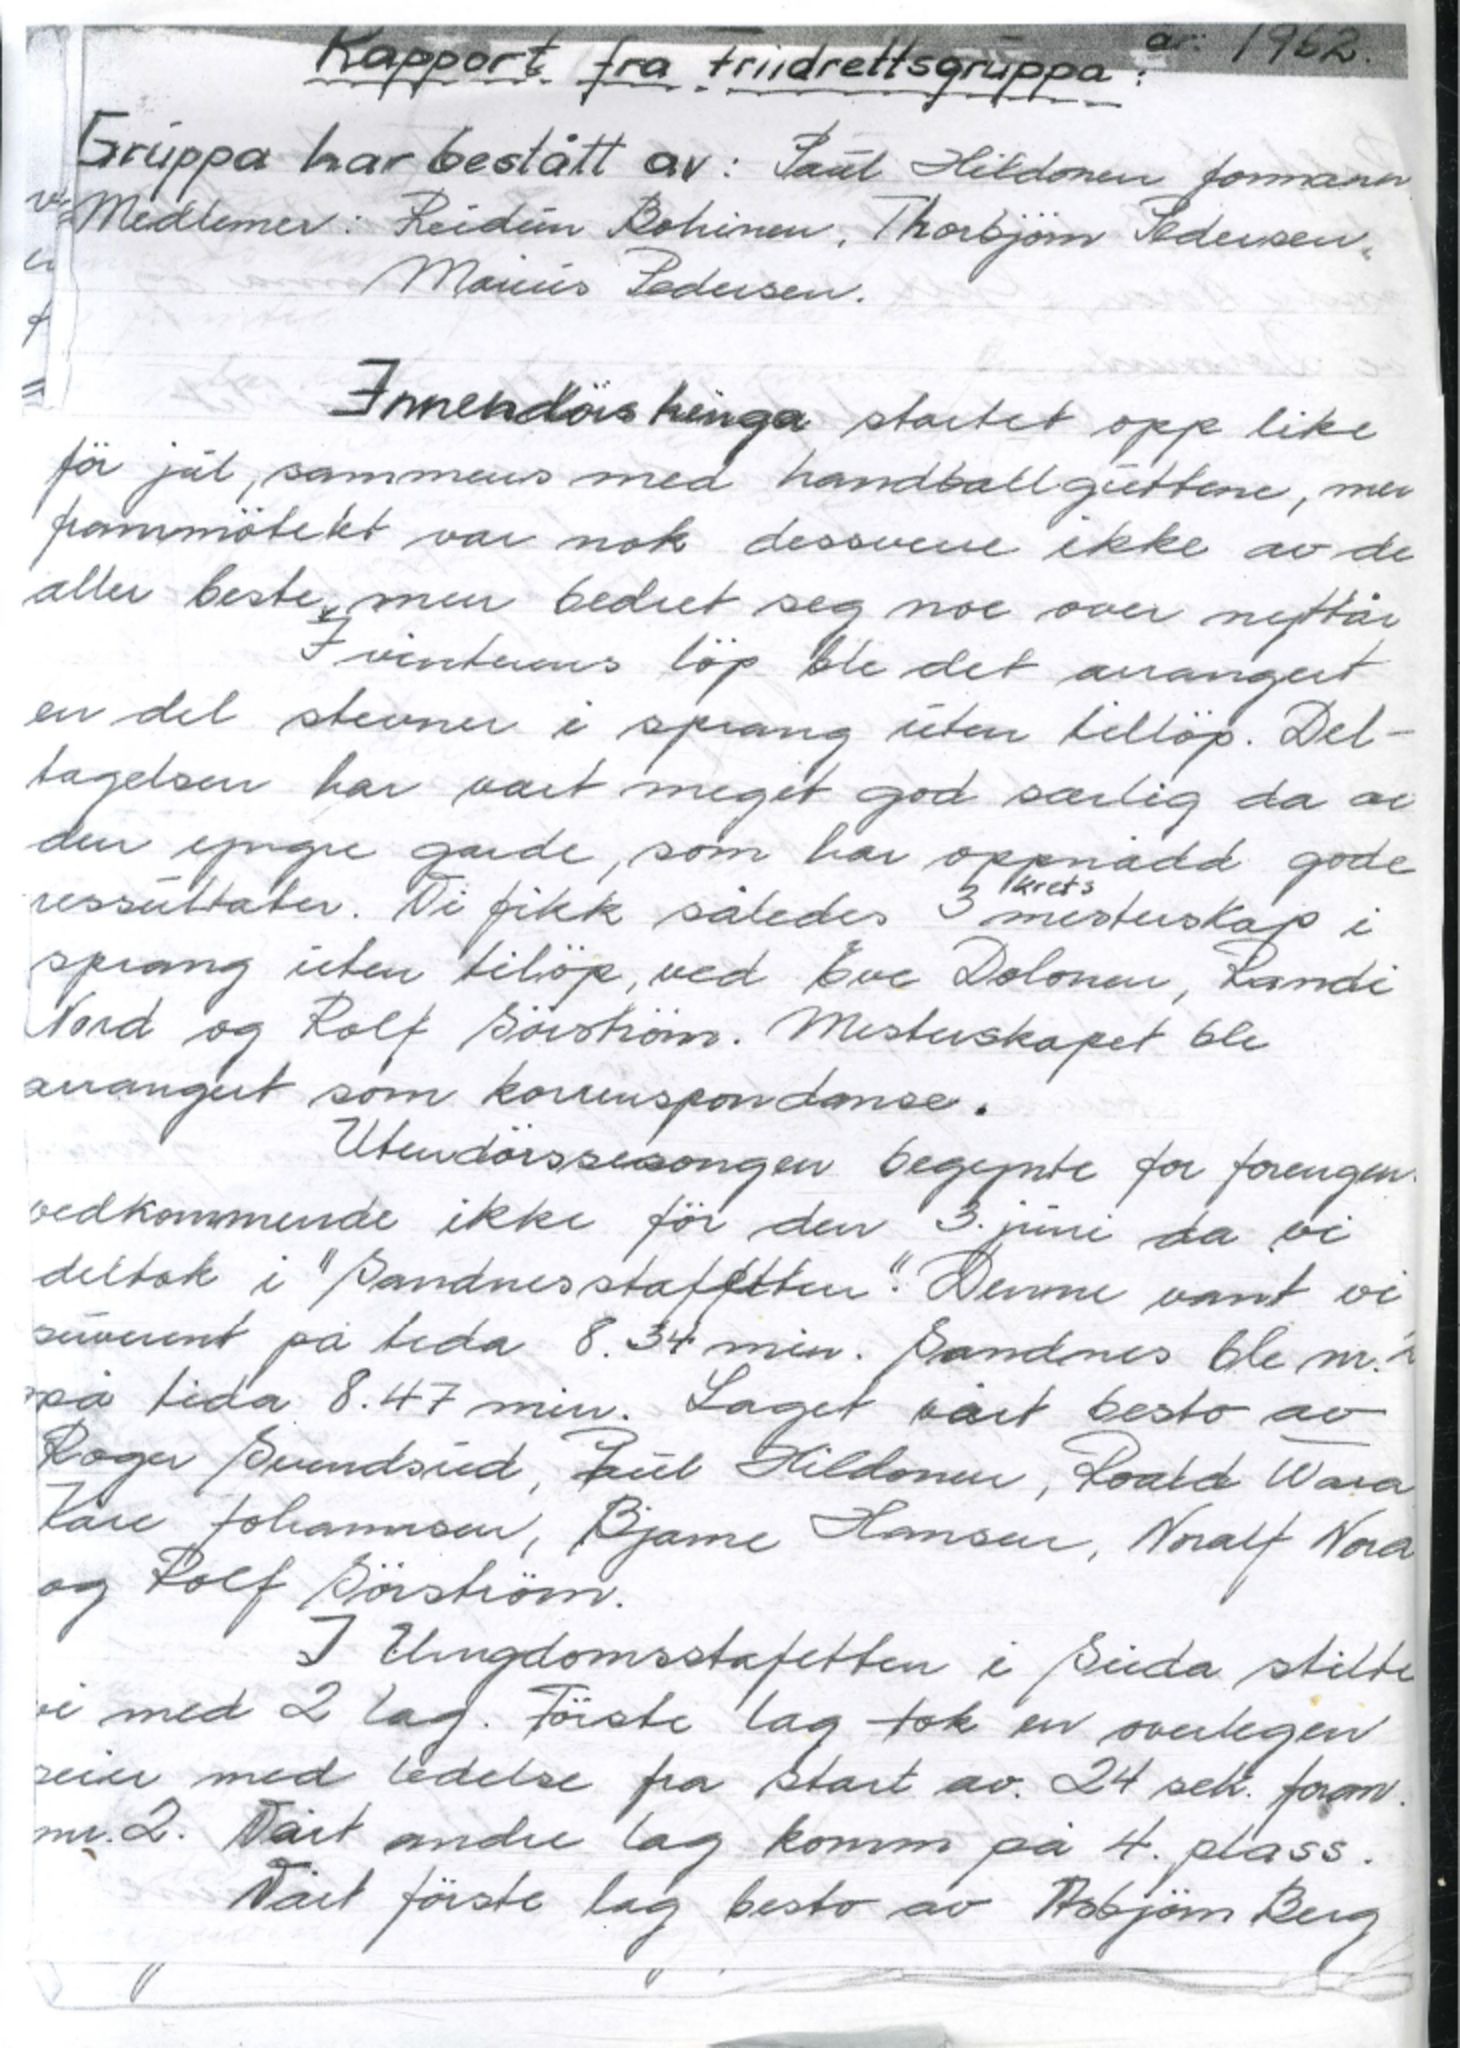 Rapport fra friidrettsgruppa: år: 1962.
Gruppa har bestått av: Paul Hildonen formann
Medlemer: Reidun Bohinen, Thorbjörn Pedersen,
Marius Pedersen.
Innendörs treninga startet opp like
för jul, sammens med handballguttene, men
frammötekt var nok dessverre ikke av de
aller beste, men bedret seg noe over nyttår
I vinterens löp ble det arrangert
en del stevner i sprang uten tillöp. Del-
tagelsen har vært meget god særlig da av
den yngre garde, som har oppnådd gode
ressultater. Vi fikk således 3 kretsmesterskap i
sprang uten tilöp, ved Eve Dolonen, Randi
Nord og Rolf Sörström. Mesterskapet ble
arrangert som korrenspondanse.
Utendörssesongen begynte for forengen
vedkommende ikke för den 3. juni da vi
deltok i "Sandnesstaffetten". Denne vant vi
suverent på tida 8.34 min. Sandnes ble nr. 2
på tida 8.47 min. Laget vårt besto av
Roger Svendsud, Paul Hildonen, Roald Wara
Kåre Johannsen, Bjarne Hansen, Noralf Nord
og Rolf Sörström.
I Ungdomsstafetten i Suda stilte
vi med 2 lag. Förste lag tok en overlegen
seier med ledelse fra start av. 24 sek. foran.
nr. 2. Vårt andre lag komm på 4. plass.
Vårt förste lag besto av Asbjörn Berg